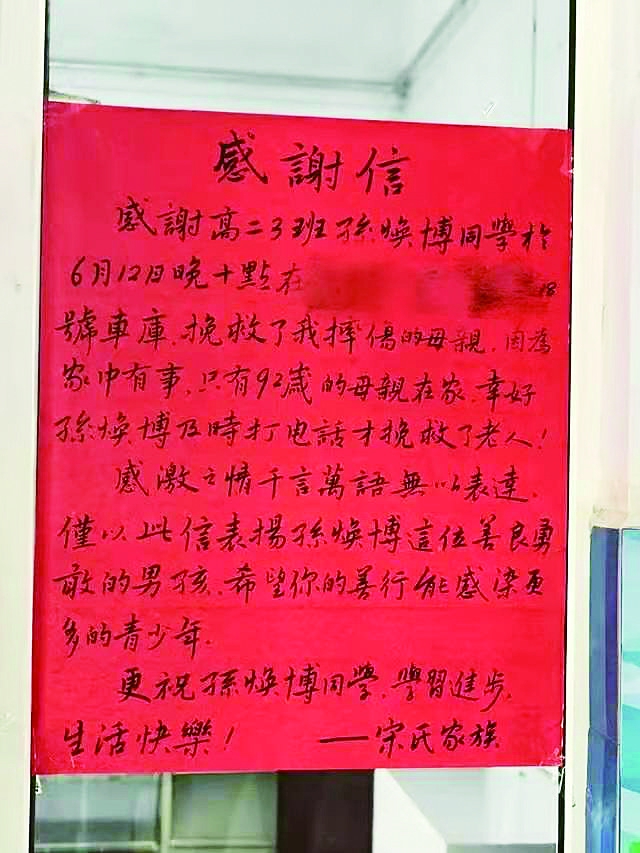 感謝信
感謝高二3班孫煥博同學於
6月12日晚十點在18
號車庫，挽救了我摔傷的母親，因為
家中有事，只有92歲的母親在家，幸好
孫煥博及時打电話才挽救了老人！
感激之情千言萬語無以表達，
僅以此信表揚孫煥博這位善良勇
敢的男孩，希望你的善行能感染更
多的青少年。
更祝孫煥博同學，學習進步，
生活快樂！ ——宋氏家族